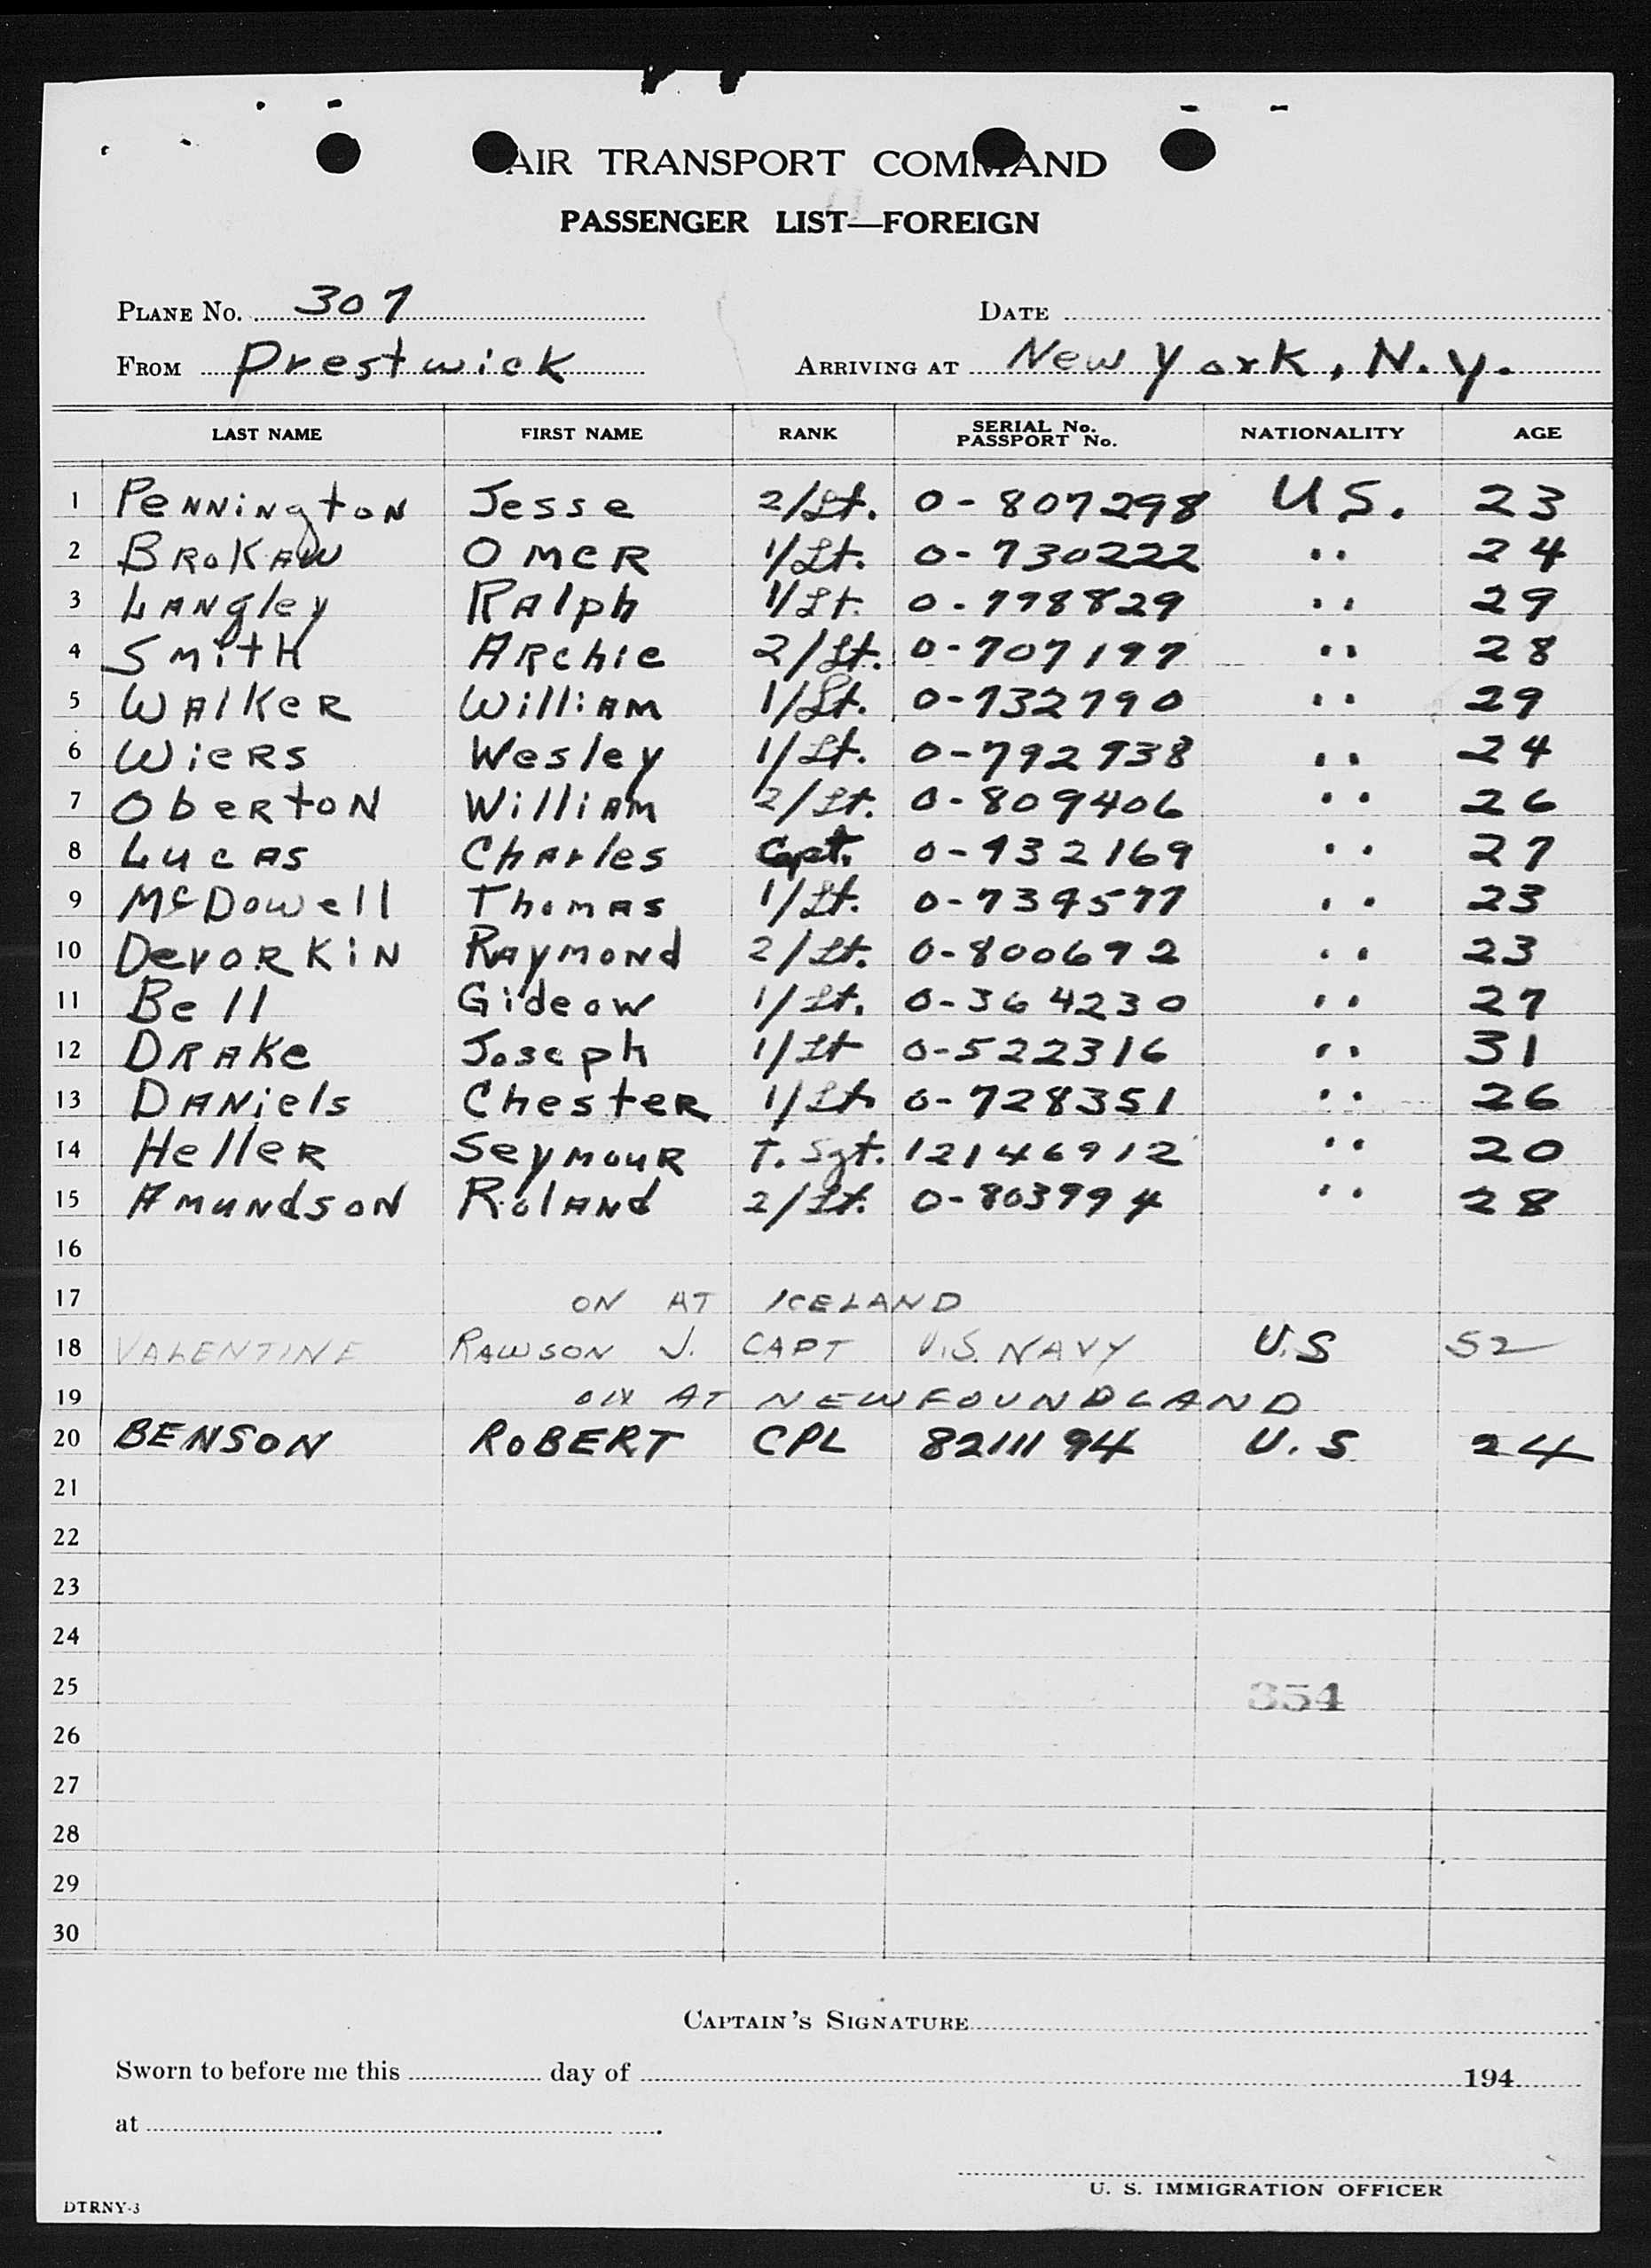 AIR TRANSPORT COMMAND
PASSENGER LIST—FOREIGN
PLANE No. 307 DATE
FROM Prestwick ARRIVING AT New York, N.Y.
LAST NAME FIRST NAME RANK SERIAL No. PASSPORT No. NATIONALITY AGE
1 Pennington Jesse 2/Lt. 0-807298 U.S. 23
2 Brokaw Omer 1/Lt. 0-730222 " 24
3 Langley Ralph 1/Lt. 0-798829 " 29
4 Smith Archie 2/Lt. 0-707197 " 28
5 Walker William 1/Lt. 0-732790 " 29
6 Wiers Wesley 1/Lt. 0-792938 " 24
7 Oberton William 2/Lt. 0-809406 " 26
8 Lucas Charles Capt. 0-432169 " 27
9 McDowell Thomas 1/Lt. 0-739577 " 23
10 Devorkin Raymond 2/Lt. 0-800692 " 23
11 Bell Gideow 1/Lt. 0-364230 " 27
12 Drake Joseph 1/Lt 0-522316 " 31
13 Daniels Chester 1/Lt. 0-728351 " 26
14 Heller Seymour T. Sgt. 12146912 " 20
15 Amundson Roland 2/Lt. 0-803994 " 28
16
17 ON AT ICELAND
18 VALENTINE RAWSON J. CAPT U.S. NAVY U.S 52
19 ON AT NEWFOUNDLAND
20 BENSON ROBERT CPL 82111194 U.S 24
21
22
23
24
25 354
26
27
28
29
30
CAPTAIN'S SIGNATURE
Sworn to before me this day of 194
at
U. S. IMMIGRATION OFFICER
DTRNY-3